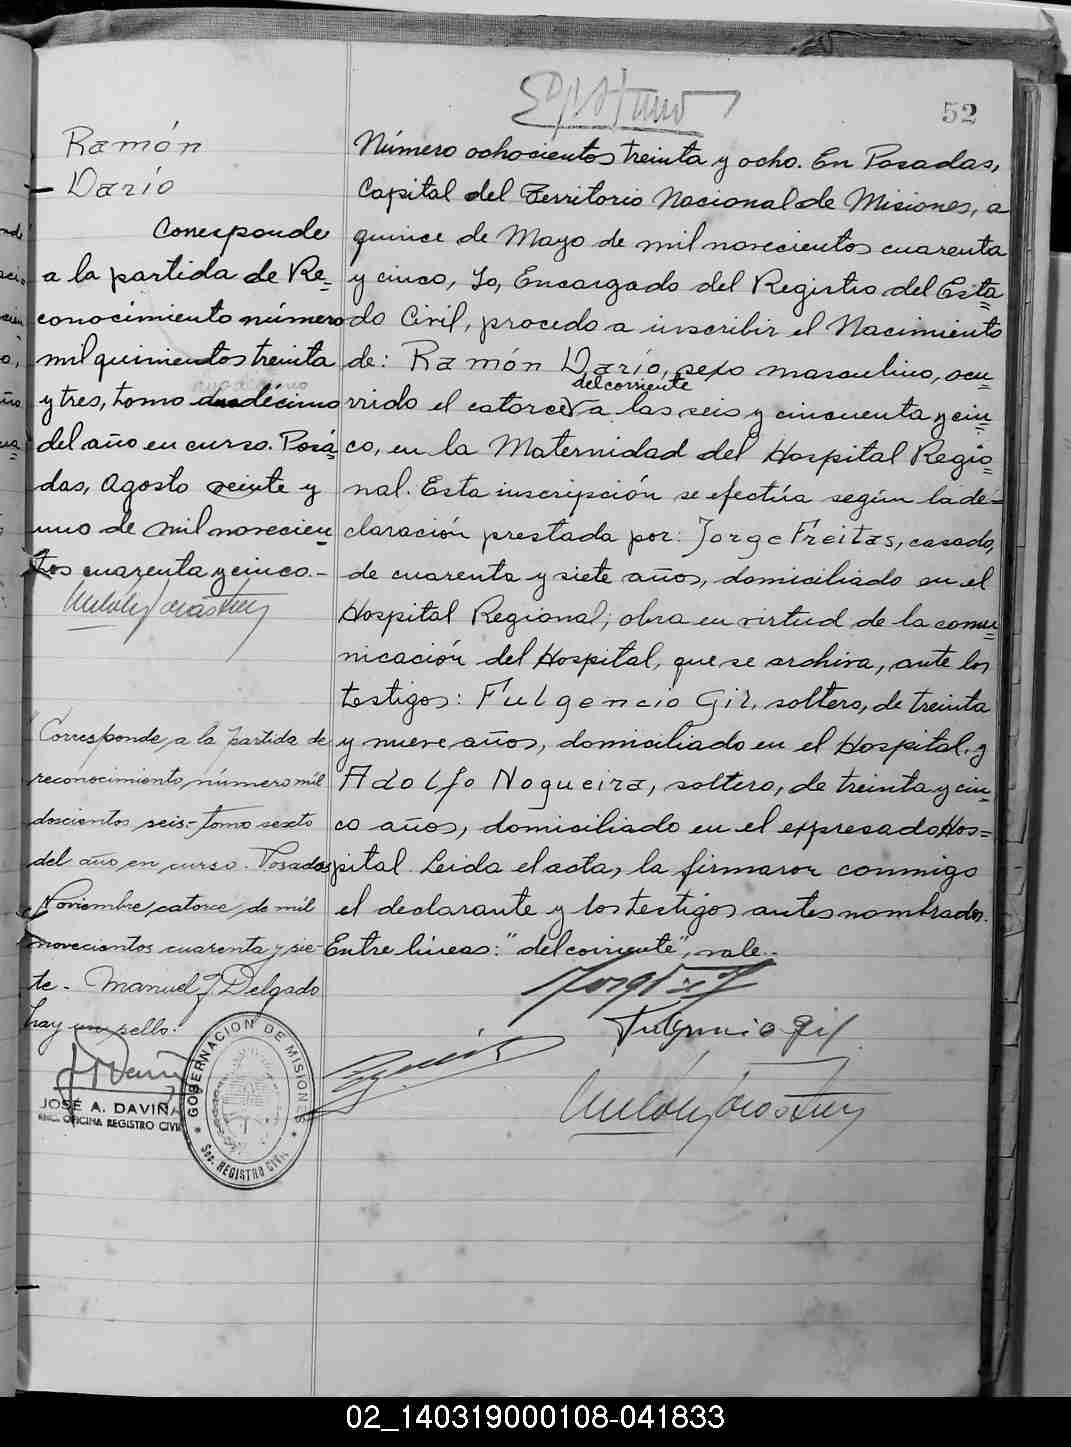 52
Ramón
Darío
Corresponde
a la partida de Re=
conocimiento número
mil quinientos treinta
y tres, tomo duodécimo
del año en curso. Posa=
das, Agosto veinte y
uno de mil novecien=
tos cuarenta y cinco.-
Corresponde, a la partida de
reconocimiento, número mil
doscientos seis.- Tomo sexto
del año en curso. Posadas
Noviembre, catorce, de mil
novecientos cuarenta y sie-
te. Manuel J. Delgado
hay un sello.
JOSÉ A. DAVIÑA
ENC. OFICINA REGISTRO CIVIL
GOBERNACION DE MISIONES
Sec. REGISTRO CIVIL
Número ochocientos treinta y ocho. En Posadas,
Capital del Territorio Nacional de Misiones, a
quince de Mayo de mil novecientos cuarenta
y cinco, Yo, Encargado del Registro del Esta=
do Civil, procedo a inscribir el Nacimiento
de: Ramón Darío, sexo masculino, ocu=
del corriente
rrido el catorce a las seis y cincuenta y cin=
co, en la Maternidad del Hospital Regio=
nal. Esta inscripción se efectúa según la de=
claración prestada por: Jorge Freitas, casado,
de cuarenta y siete años, domiciliado en el
Hospital Regional; obra en virtud de la comu=
nicación del Hospital, que se archiva, ante los
testigos: Fulgencio Gil, soltero, de treinta
y nueve años, domiciliado en el Hospital y
Adolfo Nogueira, soltero, de treinta y cin=
co años, domiciliado en el expresado Hos=
pital. Leida el acta, la firmaron conmigo
el declarante y los testigos antes nombrados.
Entre líneas: "del corriente", vale.-
Fulgencio Gil
02_140319000108-041833